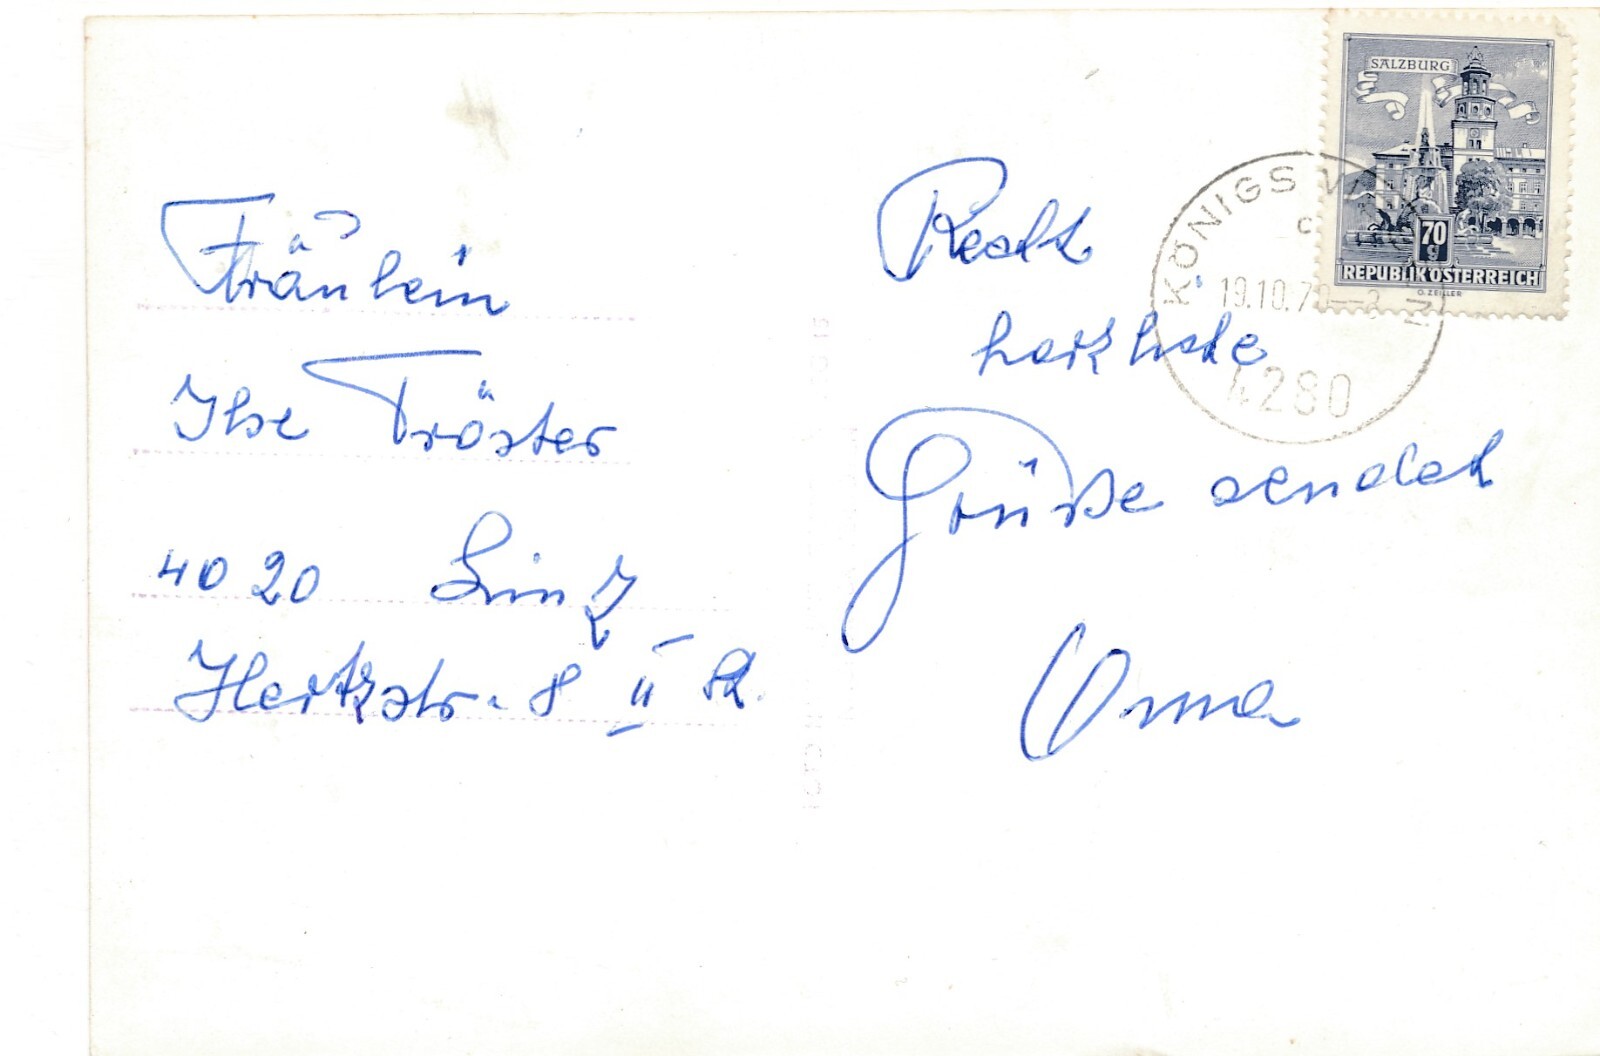 Fräulein
Ilse Tröster
4020 Linz
Hertzstr. 8 II St.
Recht
herzliche
Grüße sendet
Oma
SALZBURG
70
g
REPUBLIK ÖSTERREICH
O. ZEILLER
KÖNIGS
c
19.10.7
4280